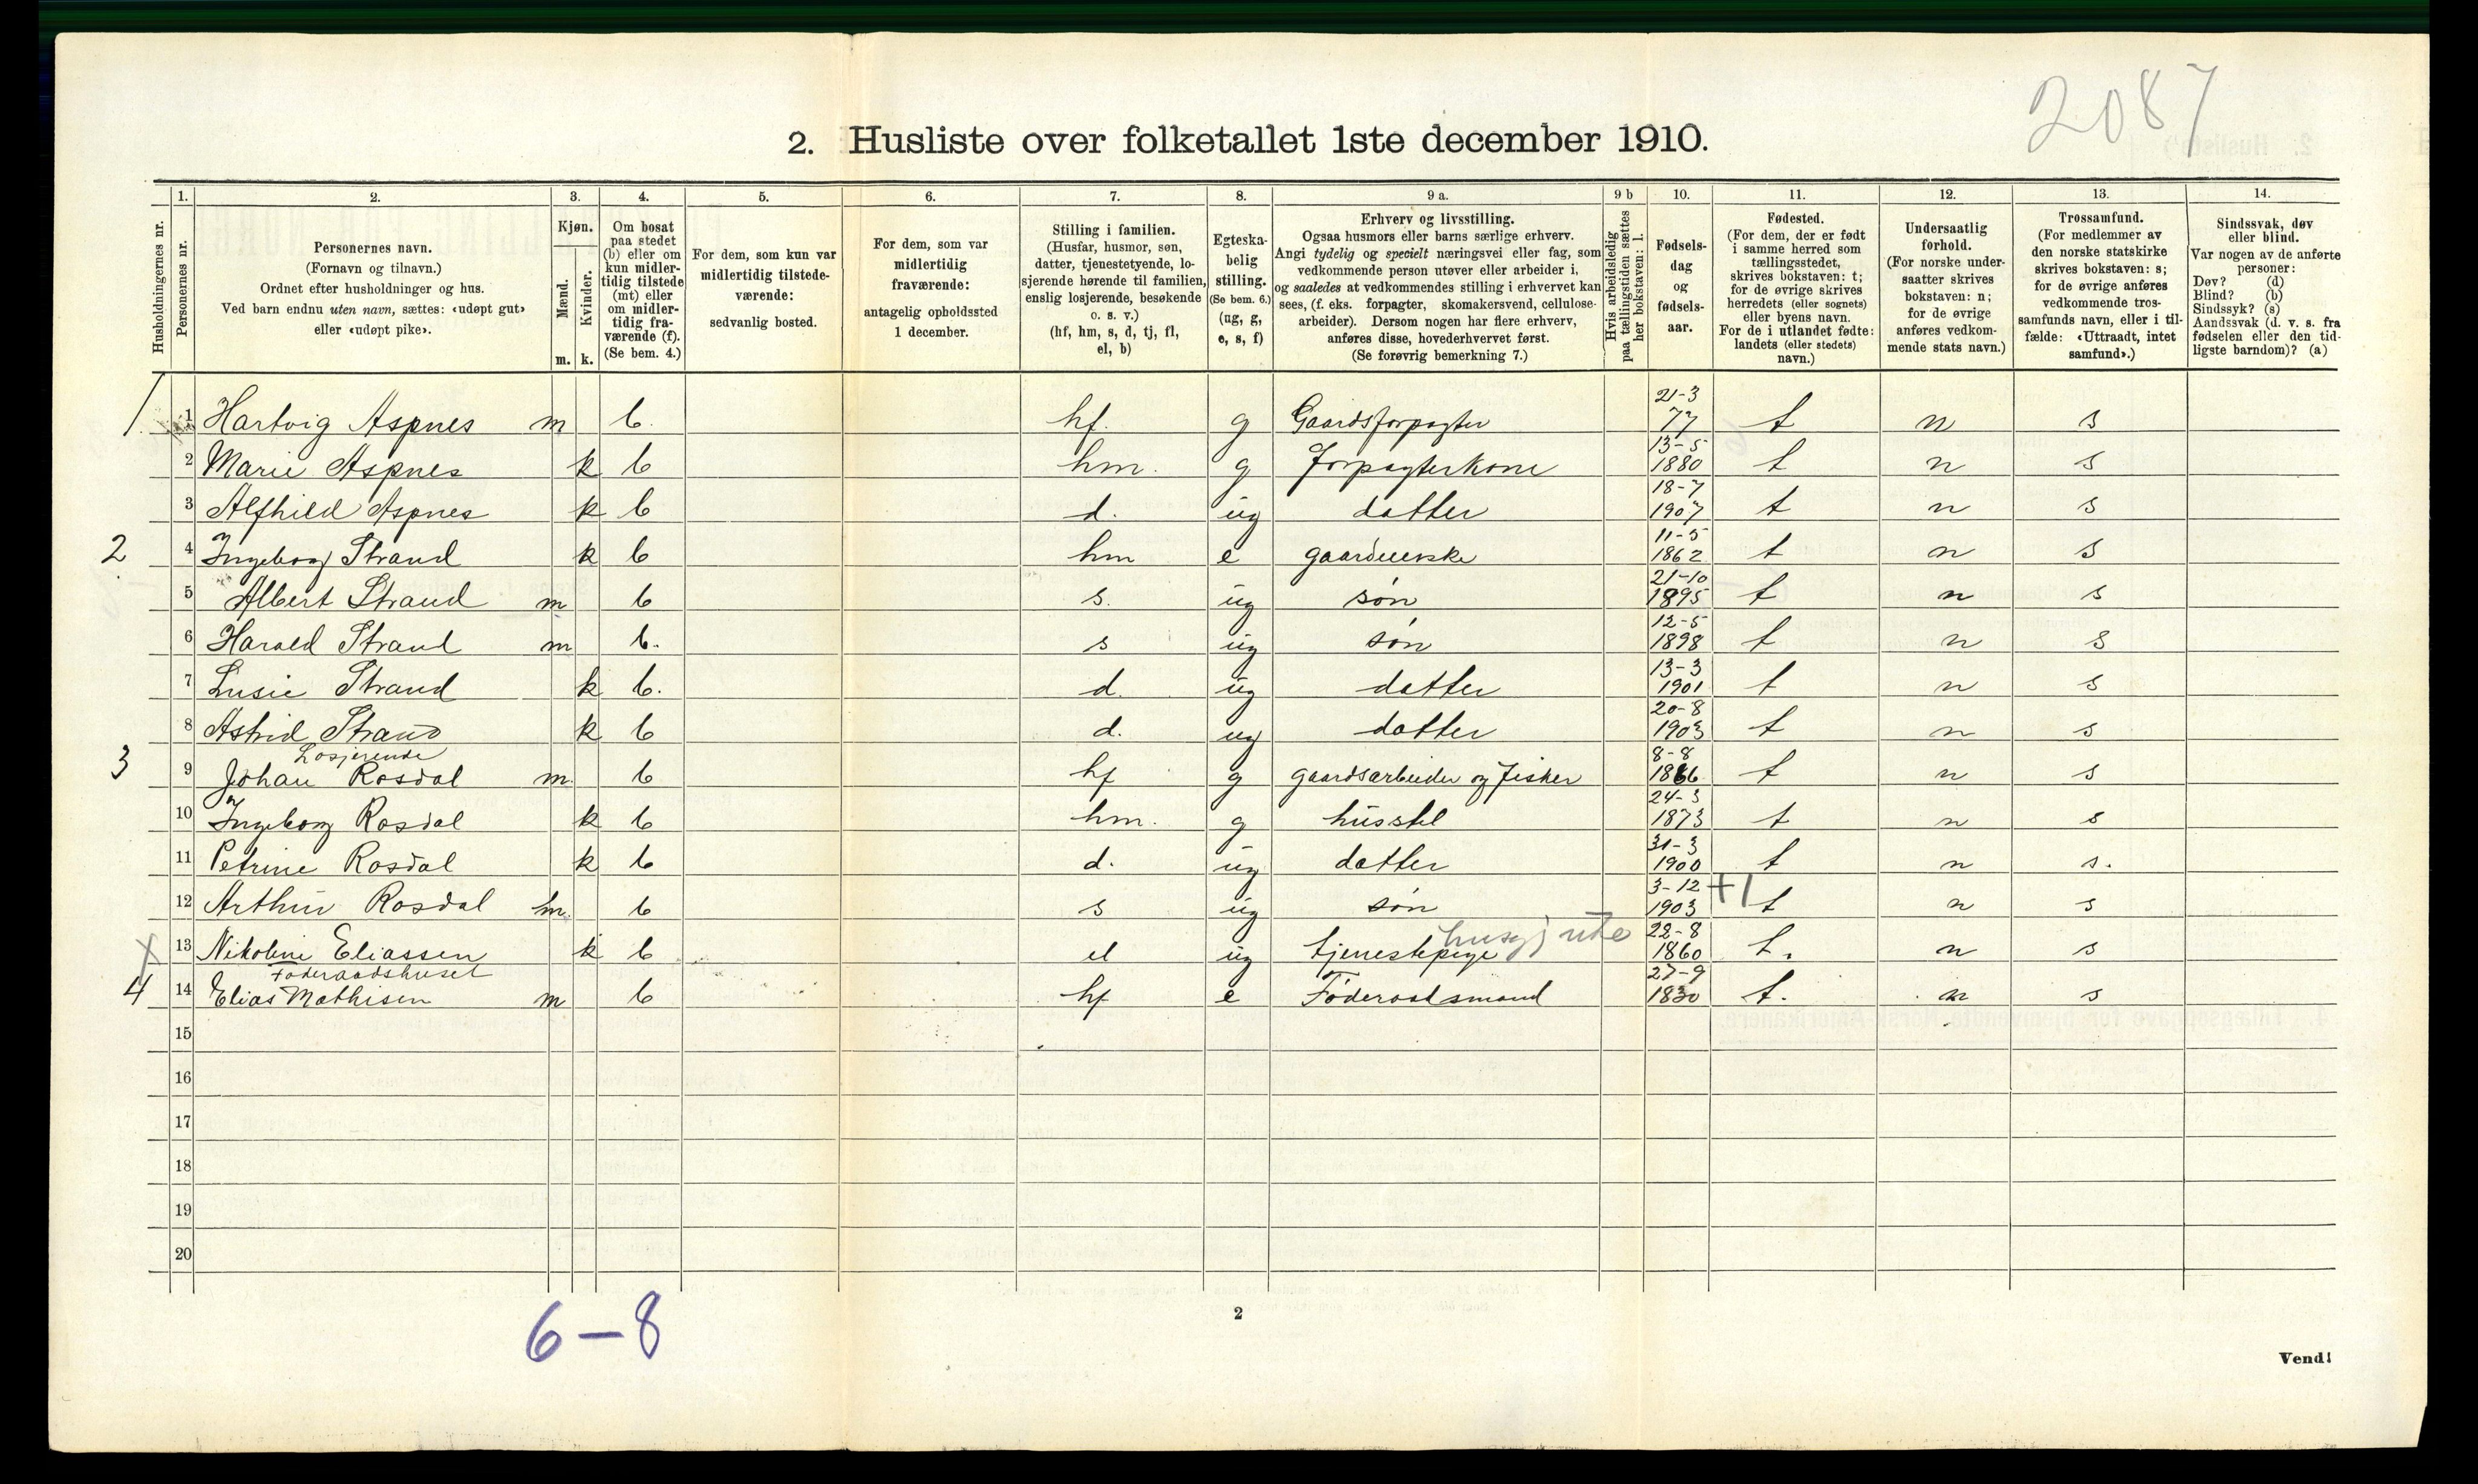 2087
2. Husliste over folketallet 1ste december 1910.
1. 2. 3. 4. 5. 6. 7. 8. 9 a. 9 b 10. 11. 12. 13. 14.
Husholdningernes nr.
Personernes nr.
Personernes navn.
(Fornavn og tilnavn.)
Ordnet efter husholdninger og hus.
Ved barn endnu uten navn, sættes: «udøpt gut»
eller «udøpt pike».
Kjøn.
Mænd.
Kvinder.
m. k.
Om bosat
paa stedet
(b) eller om
kun midler-
tidig tilstede
(mt) eller
om midler-
tidig fra-
værende (f).
(Se bem. 4.)
For dem, som kun var
midlertidig tilstede-
værende:
sedvanlig bosted.
For dem, som var
midlertidig
fraværende:
antagelig opholdssted
1 december.
Stilling i familien.
(Husfar, husmor, søn,
datter, tjenestetyende, lo-
sjerende hørende til familien,
enslig losjerende, besøkende
o. s. v.)
(hf, hm, s, d, tj, fl,
el, b)
Egteska-
belig
stilling.
(Se bem. 6.)
(ug, g,
e, s, f)
Erhverv og livsstilling.
Ogsaa husmors eller barns særlige erhverv.
Angi tydelig og specielt næringsvei eller fag, som
vedkommende person utøver eller arbeider i,
og saaledes at vedkommendes stilling i erhvervet kan
sees, (f. eks. forpagter, skomakersvend, cellulose-
arbeider). Dersom nogen har flere erhverv,
anføres disse, hovederhvervet først.
(Se forøvrig bemerkning 7.)
Hvis arbeidsledig
paa tællingstiden sættes
her bokstaven: l.
Fødsels-
dag
og
fødsels-
aar.
Fødested.
(For dem, der er født
i samme herred som
tællingsstedet,
skrives bokstaven: t;
for de øvrige skrives
herredets (eller sognets)
eller byens navn.
For de i utlandet fødte:
landets (eller stedets)
navn.)
Undersaatlig
forhold.
(For norske under-
saatter skrives
bokstaven: n;
for de øvrige
anføres vedkom-
mende stats navn.)
Trossamfund.
(For medlemmer av
den norske statskirke
skrives bokstaven: s;
for de øvrige anføres
vedkommende tros-
samfunds navn, eller i til-
fælde: «Uttraadt, intet
samfund».)
Sindssvak, døv
eller blind.
Var nogen av de anførte
personer:
Døv? (d)
Blind? (b)
Sindssyk? (s)
Aandssvak (d. v. s. fra
fødselen eller den tid-
ligste barndom)? (a)
1 1 Hartvig Aspnes m b. hf. g Gaardsforpagter 21-3 77 t n s
2 Marie Aspnes k b hm. g forpagterkone 13-5 1880 t n s
3 Alfhild Aspnes k b d. ug datter 18-7 1907 t n s
2 4 Ingeborg Strand k b hm e gaardeierske 11-5 1862 t n s
5 Albert Strand m b s. ug søn 21-10 1895 t n s
6 Harald Strand m b. s ug søn 12-5 1898 t n s
7 Lusie Strand k b. d. ug datter 13-3 1901 t n s
8 Astrid Strand k b d. ug datter 20-8 1903 t n s
Losjerende
3 9 Johan Rosdal m. b hf g gaardsarbeider og fisker 8-8 1866 t n s
10 Ingeborg Rosdal k b hm. g husstel 24-3 1873 t n s
11 Petrine Rosdal k b d. ug datter 31-3 1900 t n s.
12 Arthur Rosdal m. b s ug søn 3-12 1903 +1 t n s
husgj ute
x 13 Nikoline Eliassen k b el ug tjenestepige 22-8 1860 t. n s
Föderaadshuset
4 14 Elias Mathisen m b hf e Föderaadsmand 27-9 1830 t. n s
15
16
17
18
19
20
6-8
2
Vend!